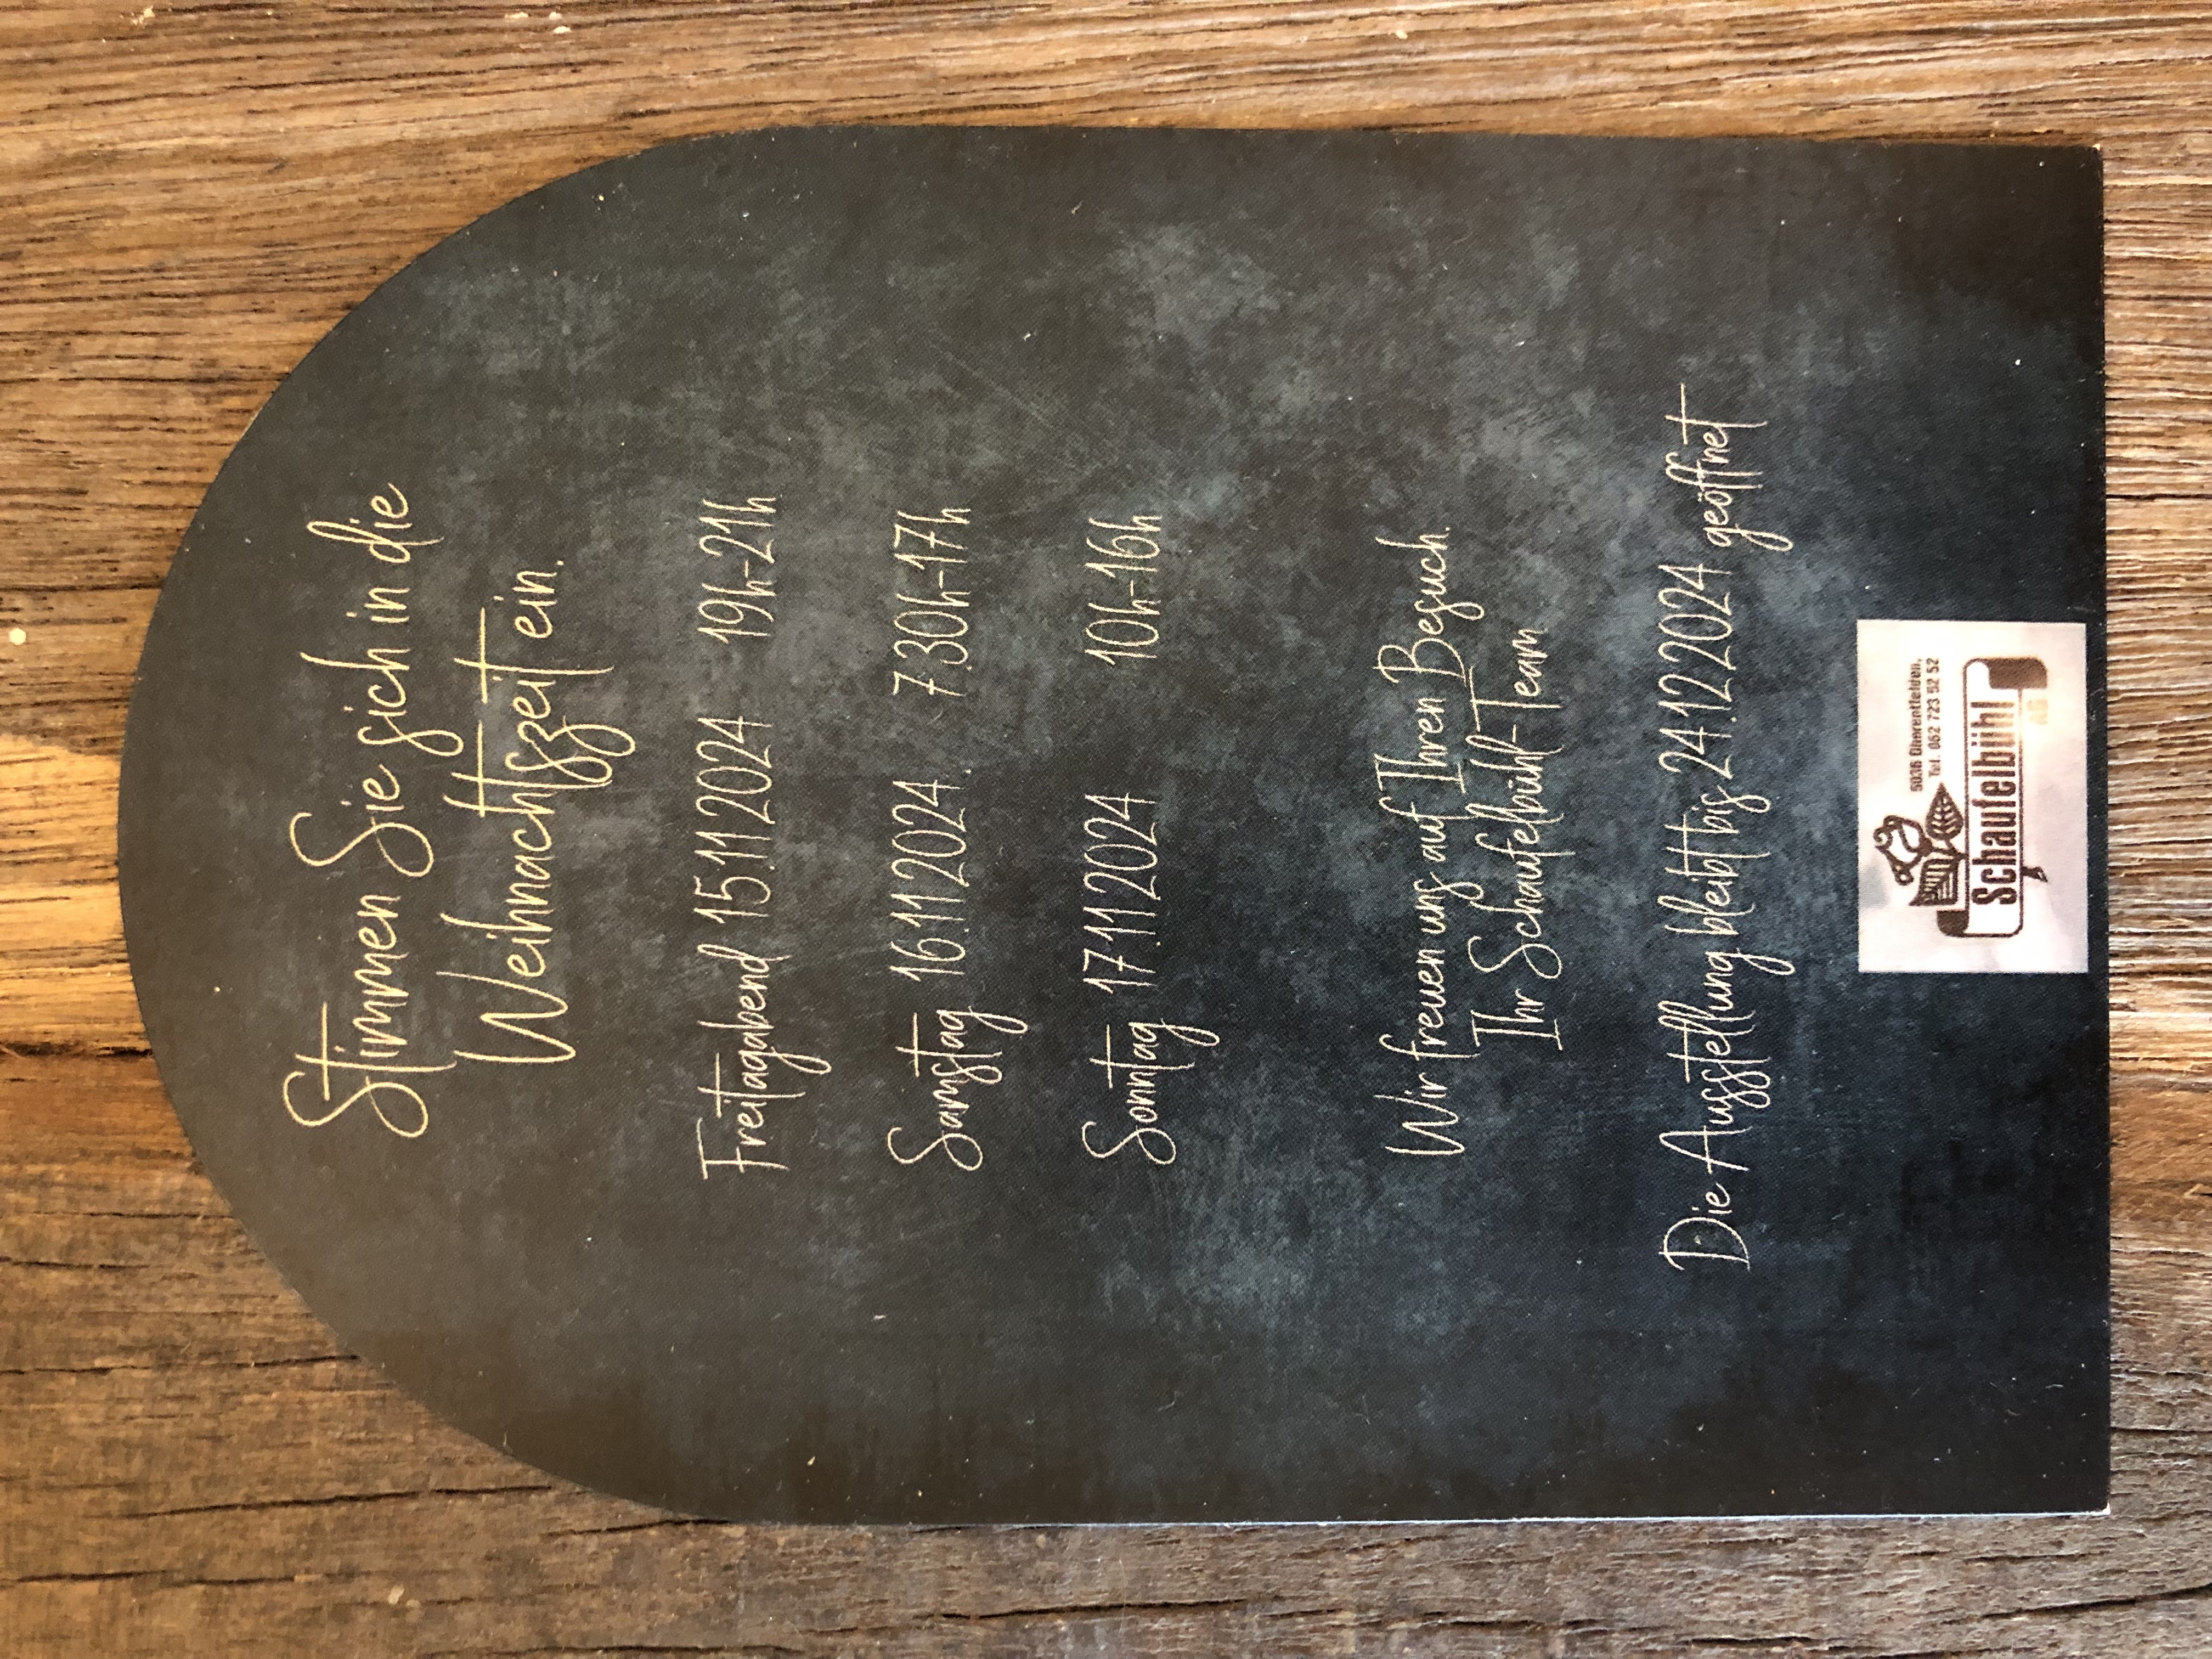 Stimmen Sie sich in die
Weihnachtszeit ein.
Freitagabend 15.11.2024 19h-21h
Samstag 16.11.2024 7.30h-17h
Sonntag 17.11.2024 10h-16h
Wir freuen uns auf Ihren Besuch.
Ihr Schaufelbühl-Team
Die Ausstellung bleibt bis 24.12.2024 geöffnet
5036 Oberentfelden,
Tel. 062 723 52 52
Schaufelbühl
AG